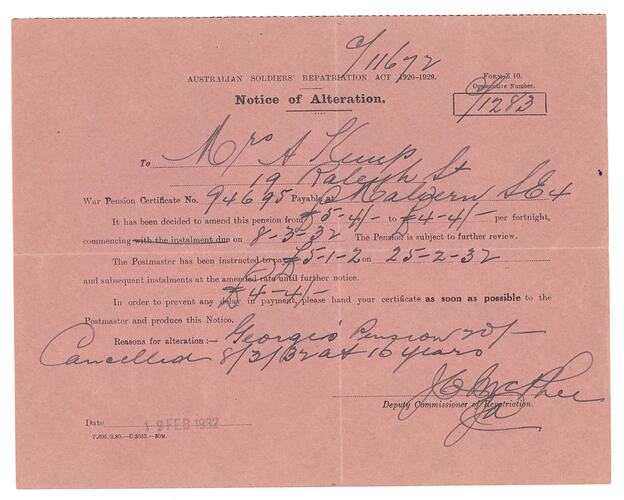 C/11672
AUSTRALIAN SOLDIERS' REPATRIATION ACT 1920-1929.
FORM Z 10.
Consecutive Number.
Notice of Alteration.
C/1283
To Mrs A Kemp
19 Raleigh St
War Pension Certificate No. 94695 Payable Malvern SE4
It has been decided to amend this pension from £5-4/- to £4-4/- per fortnight,
commencing with the instalment due on 8-3-32 The Pension is subject to further review.
The Postmaster has been instructed to pay £5-1-2 on 25-2-32
and subsequent instalments at the amended rate until further notice.
£4-4/-
In order to prevent any delay in payment, please hand your certificate as soon as possible to the
Postmaster and produce this Notice.
Reasons for alteration :— Georgie's Pension 20/-
Cancelled 8/3/32 at 16 years
J C McPhee
Deputy Commissioner of Repatriation.
Date 19 FEB 1932